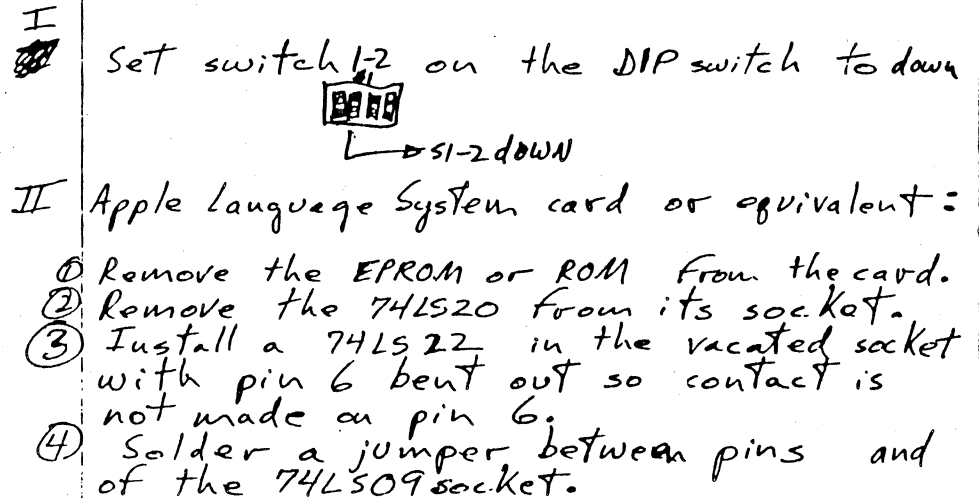 I
Set switch 1-2 on the DIP switch to down
S1-2 down
II Apple Language System card or equivalent:
① Remove the EPROM or ROM from the card.
② Remove the 74LS20 from its socket.
③ Install a 74LS22 in the vacated socket
with pin 6 bent out so contact is
not made on pin 6.
④ Solder a jumper between pins and
of the 74LS09 socket.